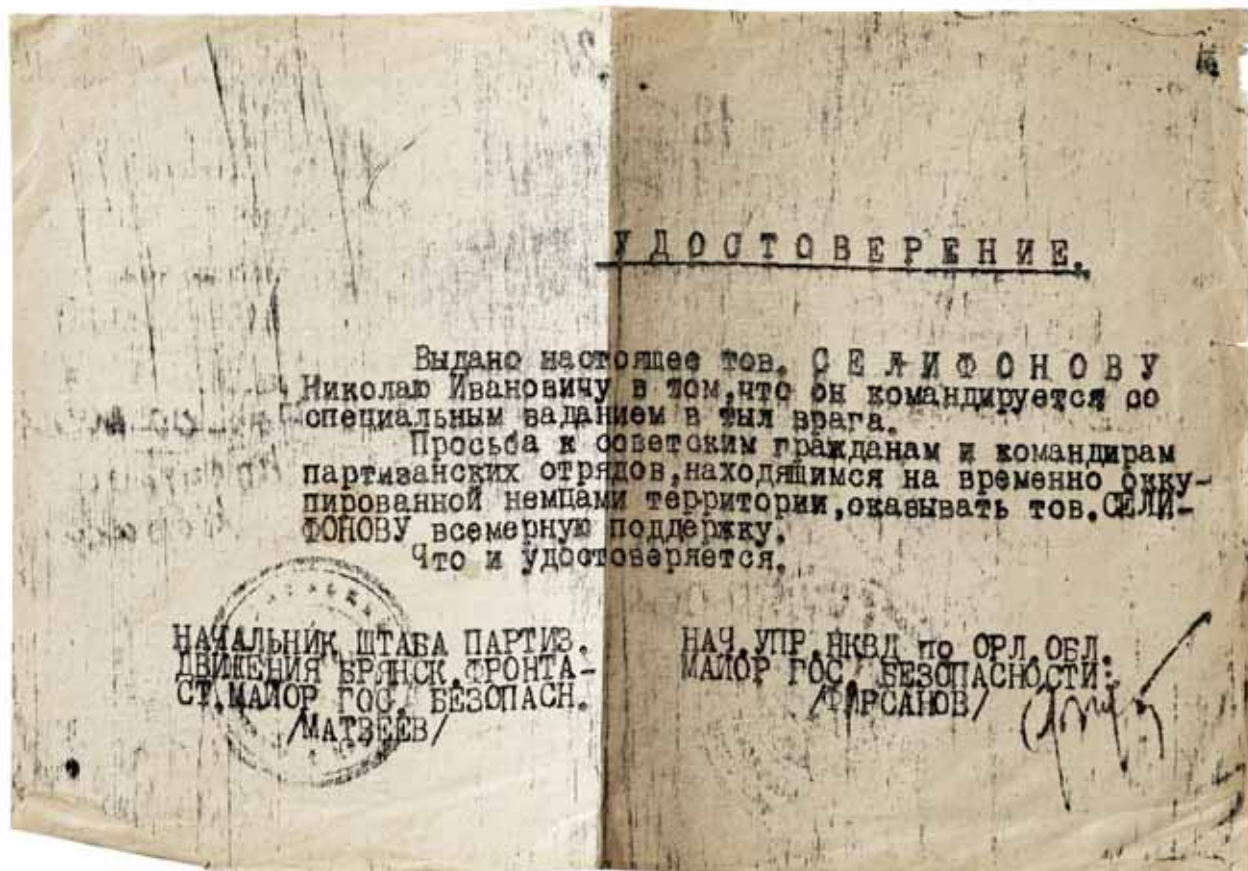 УДОСТОВЕРЕНИЕ.
Выдано настоящее тов. СЕЛИФОНОВУ
Николаю Ивановичу в том,что он командируется со
специальным заданием в тыл врага.
Просьба к советским гражданам и командирам
партизанских отрядов,находящимся на временно окку-
пированной немцами территории,оказывать тов.СЕЛИ-
ФОНОВУ всемерную поддержку.
Что и удостоверяется.
НАЧАЛЬНИК ШТАБА ПАРТИЗ.
ДВИЖЕНИЯ БРЯНСК.ФРОНТА-
СТ.МАЙОР ГОС. БЕЗОПАСН.
/МАТВЕЕВ/
НАЧ.УПР.НКВД по ОРЛ.ОБЛ.
МАЙОР ГОС. БЕЗОПАСНОСТИ:
/ФИРСАНОВ/